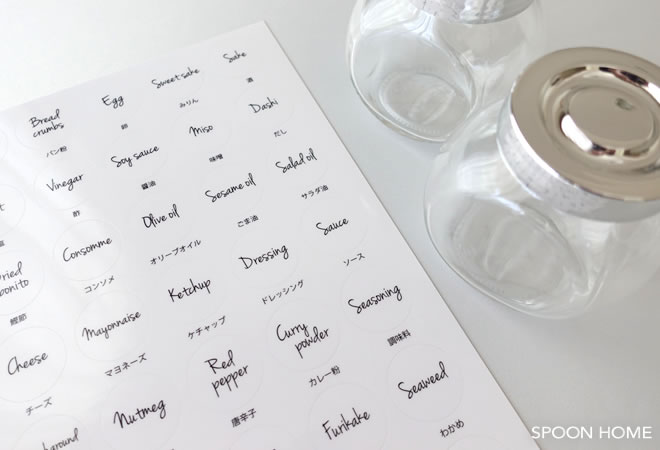 Bread
crumbs
パン粉
Egg
卵
Sweet sake
みりん
Sake
酒
Vinegar
酢
Soy sauce
醤油
Miso
味噌
Dashi
だし
Consomme
コンソメ
Olive oil
オリーブオイル
Sesame oil
ごま油
Salad oil
サラダ油
鰹節
Mayonnaise
マヨネーズ
Ketchup
ケチャップ
Dressing
ドレッシング
Sauce
ソース
Cheese
チーズ
Nutmeg
Red
pepper
唐辛子
Curry
powder
カレー粉
Seasoning
調味料
Furikake
Seaweed
わかめ
SPOON HOME